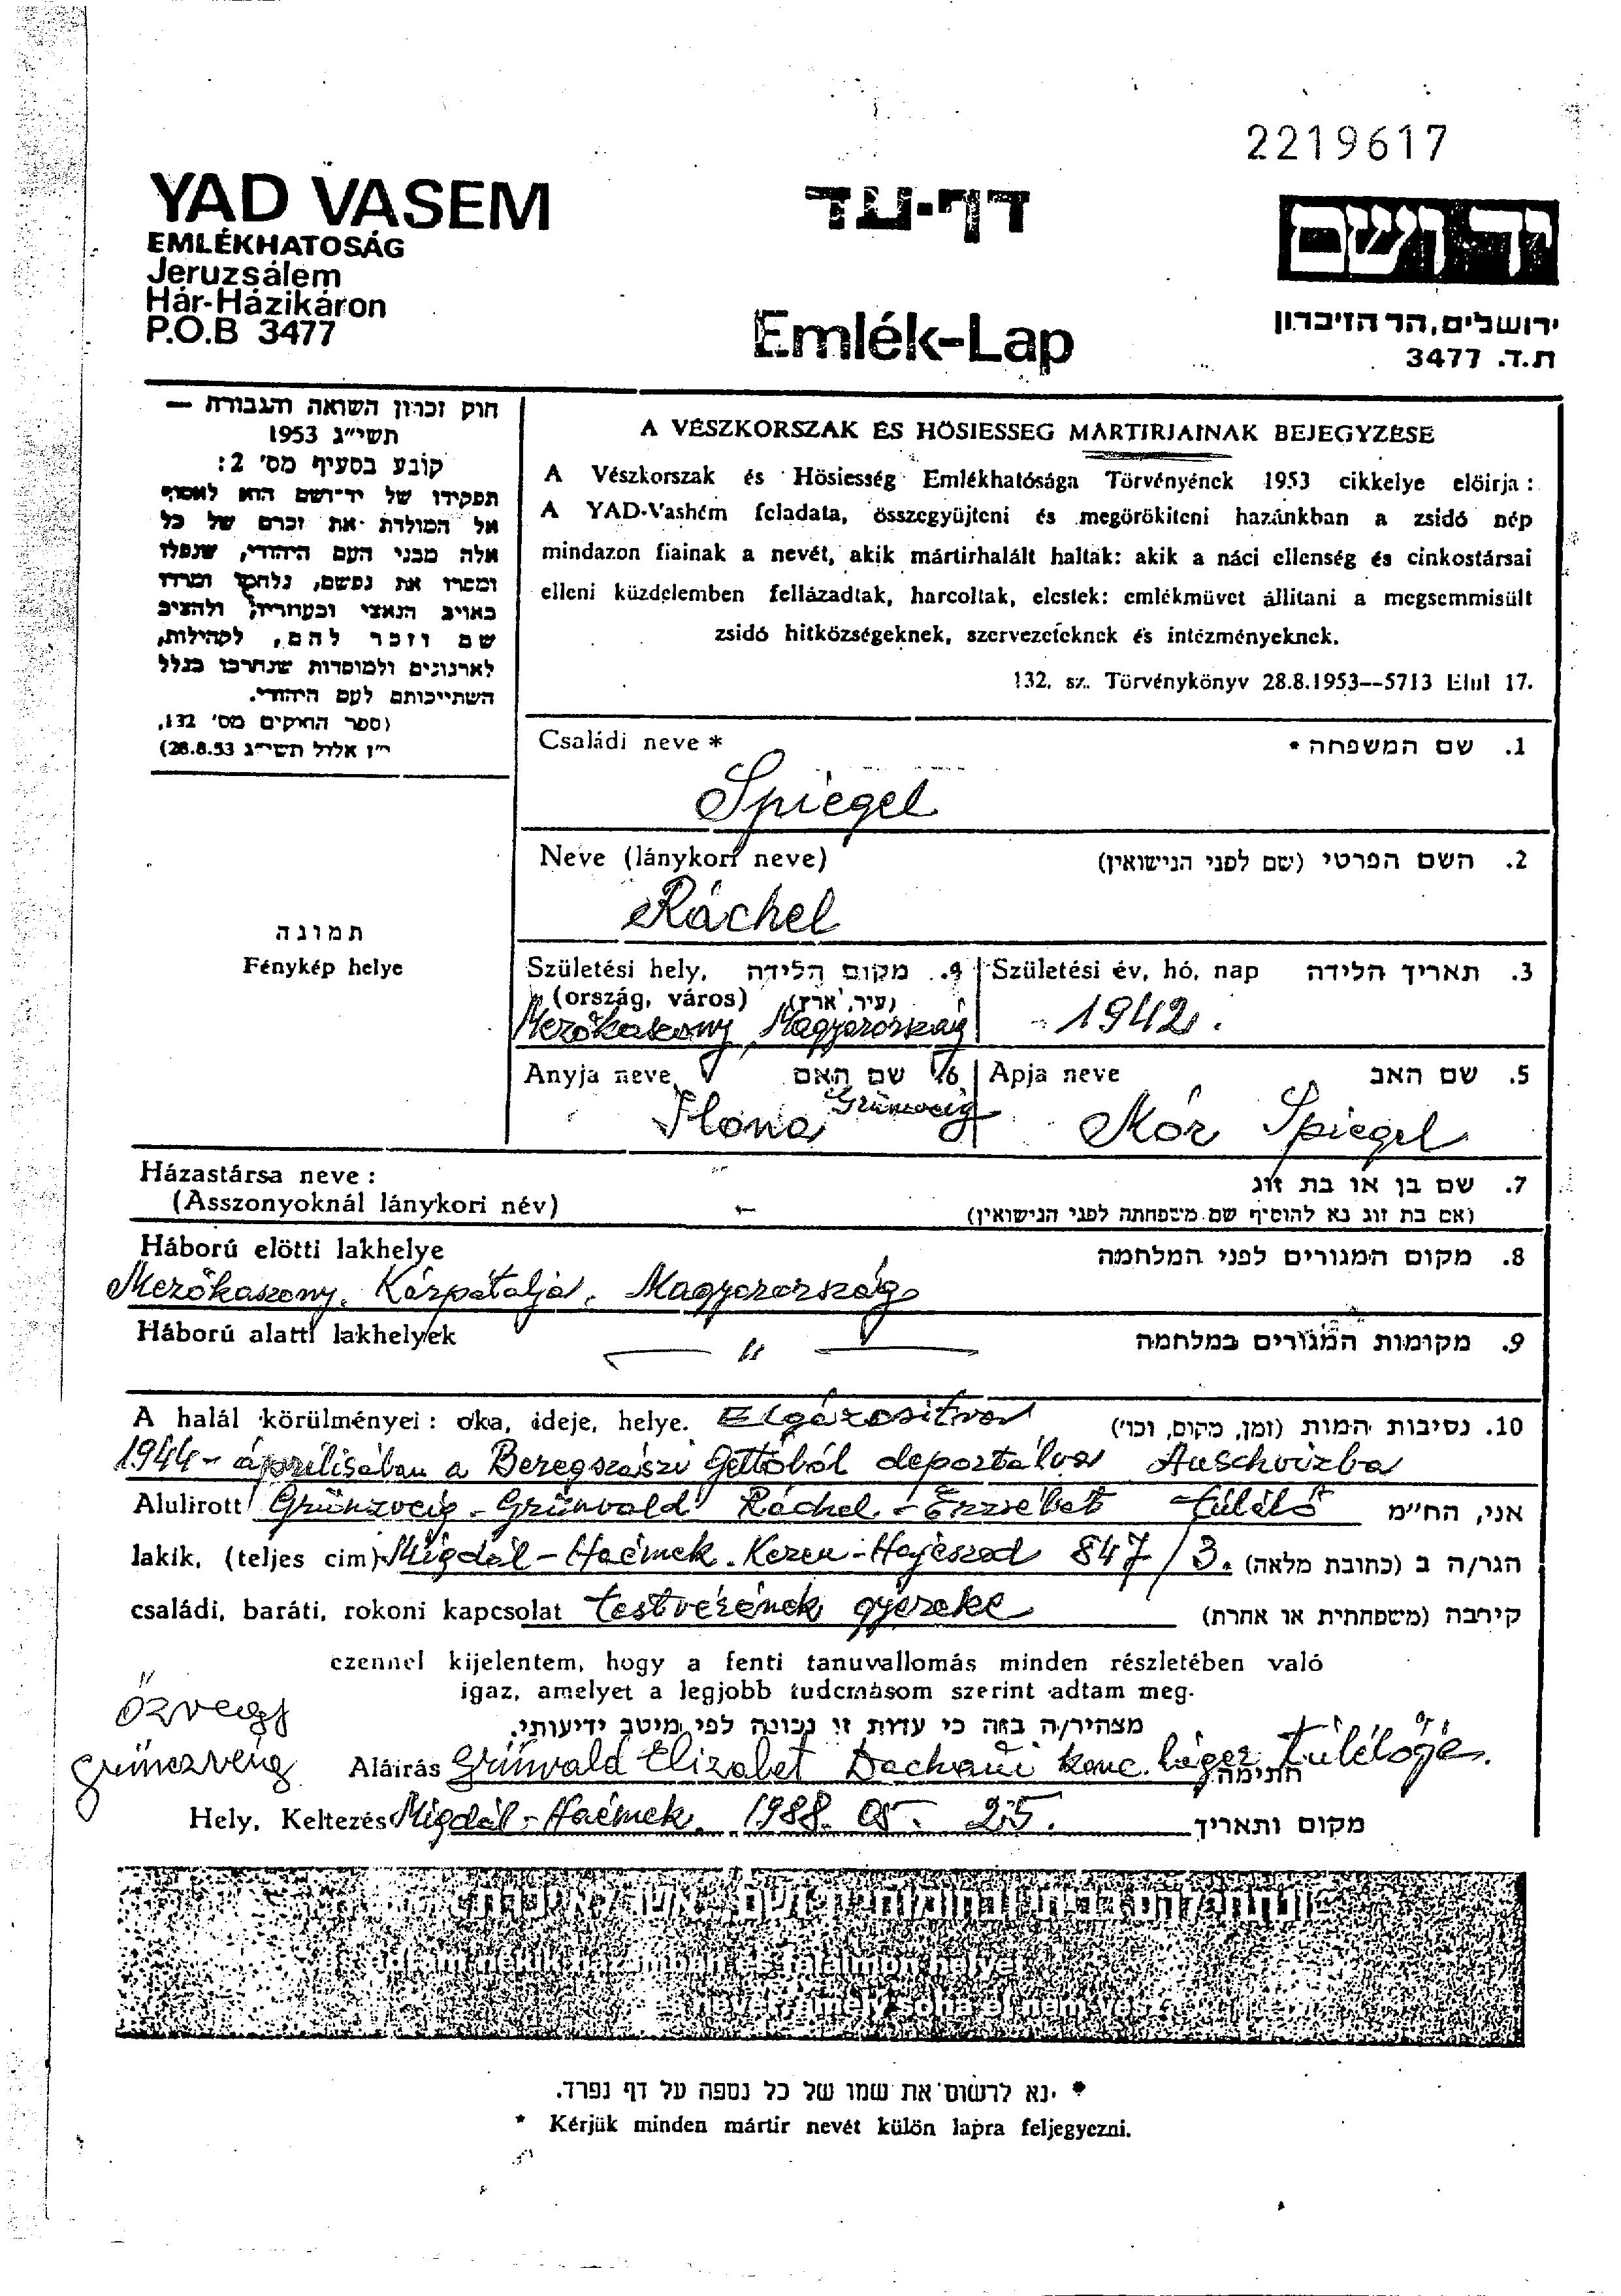 2219617
YAD VASEM
EMLÉKHATOSÁG
Jeruzsálem
Hár-Házikáron
P.O.B 3477
דף-עד
Emlék-Lap
יד ושם
ירושלים, הר הזיכרון
ת.ד. 3477
חוק זכרון השואה והגבורה —
תשי״ג 1953
קובע בסעיף מס׳ 2:
תפקידו של יד-ושם הוא לאסוף
אל המולדת את זכרם של כל
אלה מבני העם היהודי, שנפלו
ומסרו את נפשם, נלחמו ומרדו
באויב הנאצי ובעוזריו, ולהציב
שם וזכר להם, לקהילות,
לארגונים ולמוסדות שנחרבו בגלל
השתייכותם לעם היהודי.
(ספר החוקים מס׳ 132,
י״ז אלול תשי״ג 28.8.53)
A VÉSZKORSZAK ÉS HŐSIESSÉG MÁRTIRJAINAK BEJEGYZÉSE
A Vészkorszak és Hösiesség Emlékhatósága Törvényének 1953 cikkelye elöirja:
A YAD-Vashém feladata, összegyüjteni és megörökiteni hazánkban a zsidó nép
mindazon fiainak a nevét, akik mártirhalált haltak: akik a náci ellenség és cinkostársai
elleni küzdelemben fellázadtak, harcoltak, elestek: emlékmüvet állitani a megsemmisült
zsidó hitközségeknek, szervezeteknek és intézményeknek.
132. sz. Törvénykönyv 28.8.1953--5713 Elul 17.
Családi neve * 1. שם המשפחה *
Spiegel
Neve (lánykori neve) 2. השם הפרטי (שם לפני הנישואין)
Ráchel
תמונה
Fénykép helye
Születési hely, 4. מקום הלידה Születési év, hó, nap 3. תאריך הלידה
(ország, város) (עיר, ארץ)
Mezőkaszony, Magyarország 1942.
Anyja neve 6. שם האם Apja neve 5. שם האב
Ilona Grünzveig Mór Spiegel
Házastársa neve: 7. שם בן או בת זוג
(Asszonyoknál lánykori név) - (אם בת זוג נא להוסיף שם משפחתה לפני הנישואין)
Háború elötti lakhelye 8. מקום המגורים לפני המלחמה
Mezőkaszony. Kárpátalja. Magyarország
Háború alatti lakhelyek 9. מקומות המגורים במלחמה
— " —
A halál körülményei: oka, ideje, helye. Elgázositva 10. נסיבות המות (זמן, מקום, וכו׳)
1944 - áprilisában a Beregszászi Gettóból deportálva Auschvizba
Alulirott Grünzveig - Grünvald Ráchel - Erzsébet túlélő אני, הח״מ
lakik, (teljes cim) Migdál - Haémek. Keren - Hajeszod 847/3. הגר/ה ב (כתובת מלאה)
családi, baráti, rokoni kapcsolat testvérének gyereke קירבה (משפחתית או אחרת)
ezennel kijelentem, hogy a fenti tanuvallomás minden részletében való
igaz, amelyet a legjobb tudomásom szerint adtam meg.
מצהיר/ה בזה כי עדות זו נכונה לפי מיטב ידיעותי.
özvegy
Grünczveig
Aláirás Grünvald Elizabet Dachaui konc. láger túlélője. חתימה
Hely, Keltezés Migdál - Haémek. 1988. 05. 25. מקום ותאריך
* נא לרשום את שמו של כל נספה על דף נפרד.
* Kérjük minden mártir nevét külön lapra feljegyezni.